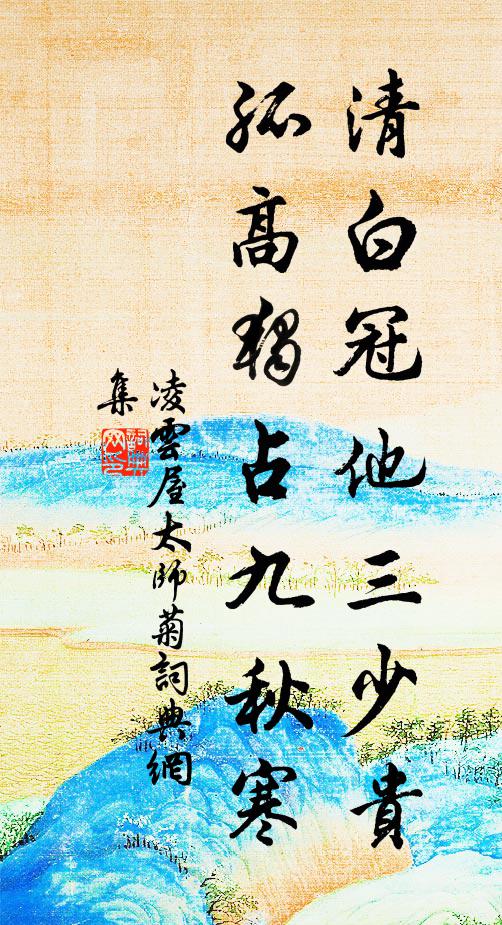 清白冠他三少貴
孤高獨占九秋寒
凌雲屋大師菊詞典網
集
詞典網